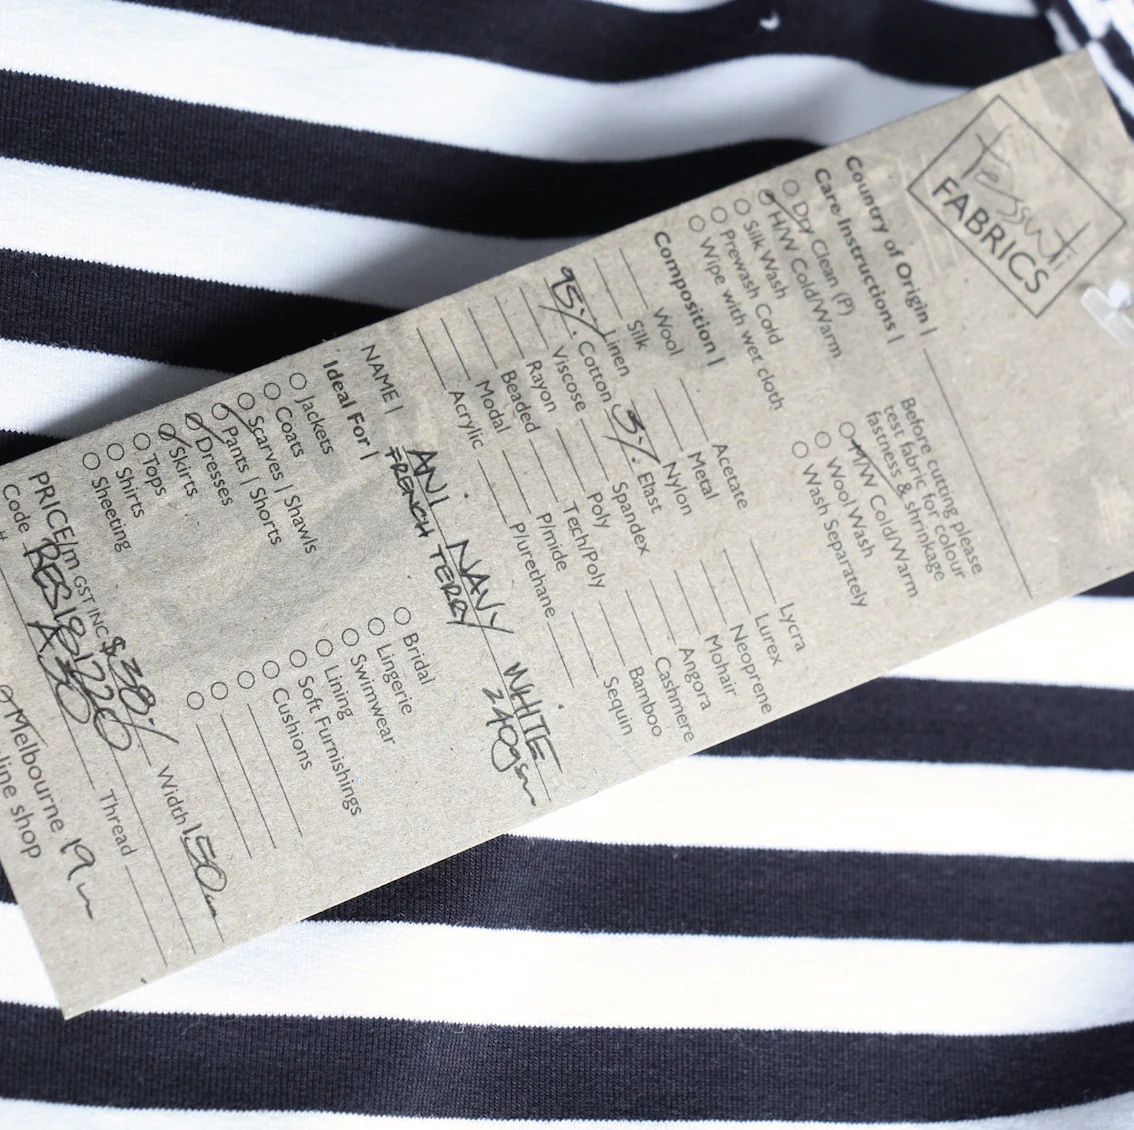 tessuti
FABRICS
Country of Origin |
Care Instructions |
Before cutting please
test fabric for colour
fastness & shrinkage
Dry Clean (P)
H/W Cold/Warm
Silk Wash
Prewash Cold
Wipe with wet cloth
M/W Cold/Warm
Wool Wash
Wash Separately
Composition |
Wool Acetate Lycra
Silk Metal Lurex
Linen Nylon Neoprene
95% Cotton 5% Elast Mohair
Viscose Spandex Angora
Rayon Poly Cashmere
Beaded Tech/Poly Bamboo
Modal P/mide Sequin
Acrylic P/urethane
NAME | ANI NAVY WHITE
FRENCH TERRY 240gsm
Ideal For |
Jackets
Coats
Scarves | Shawls
Pants | Shorts
Dresses
Skirts
Tops
Shirts
Sheeting
Bridal
Lingerie
Swimwear
Lining
Soft Furnishings
Cushions
PRICE/m GST INC $38.- Width 150cm
Code RES181220
Thread
Melbourne 19m
line shop